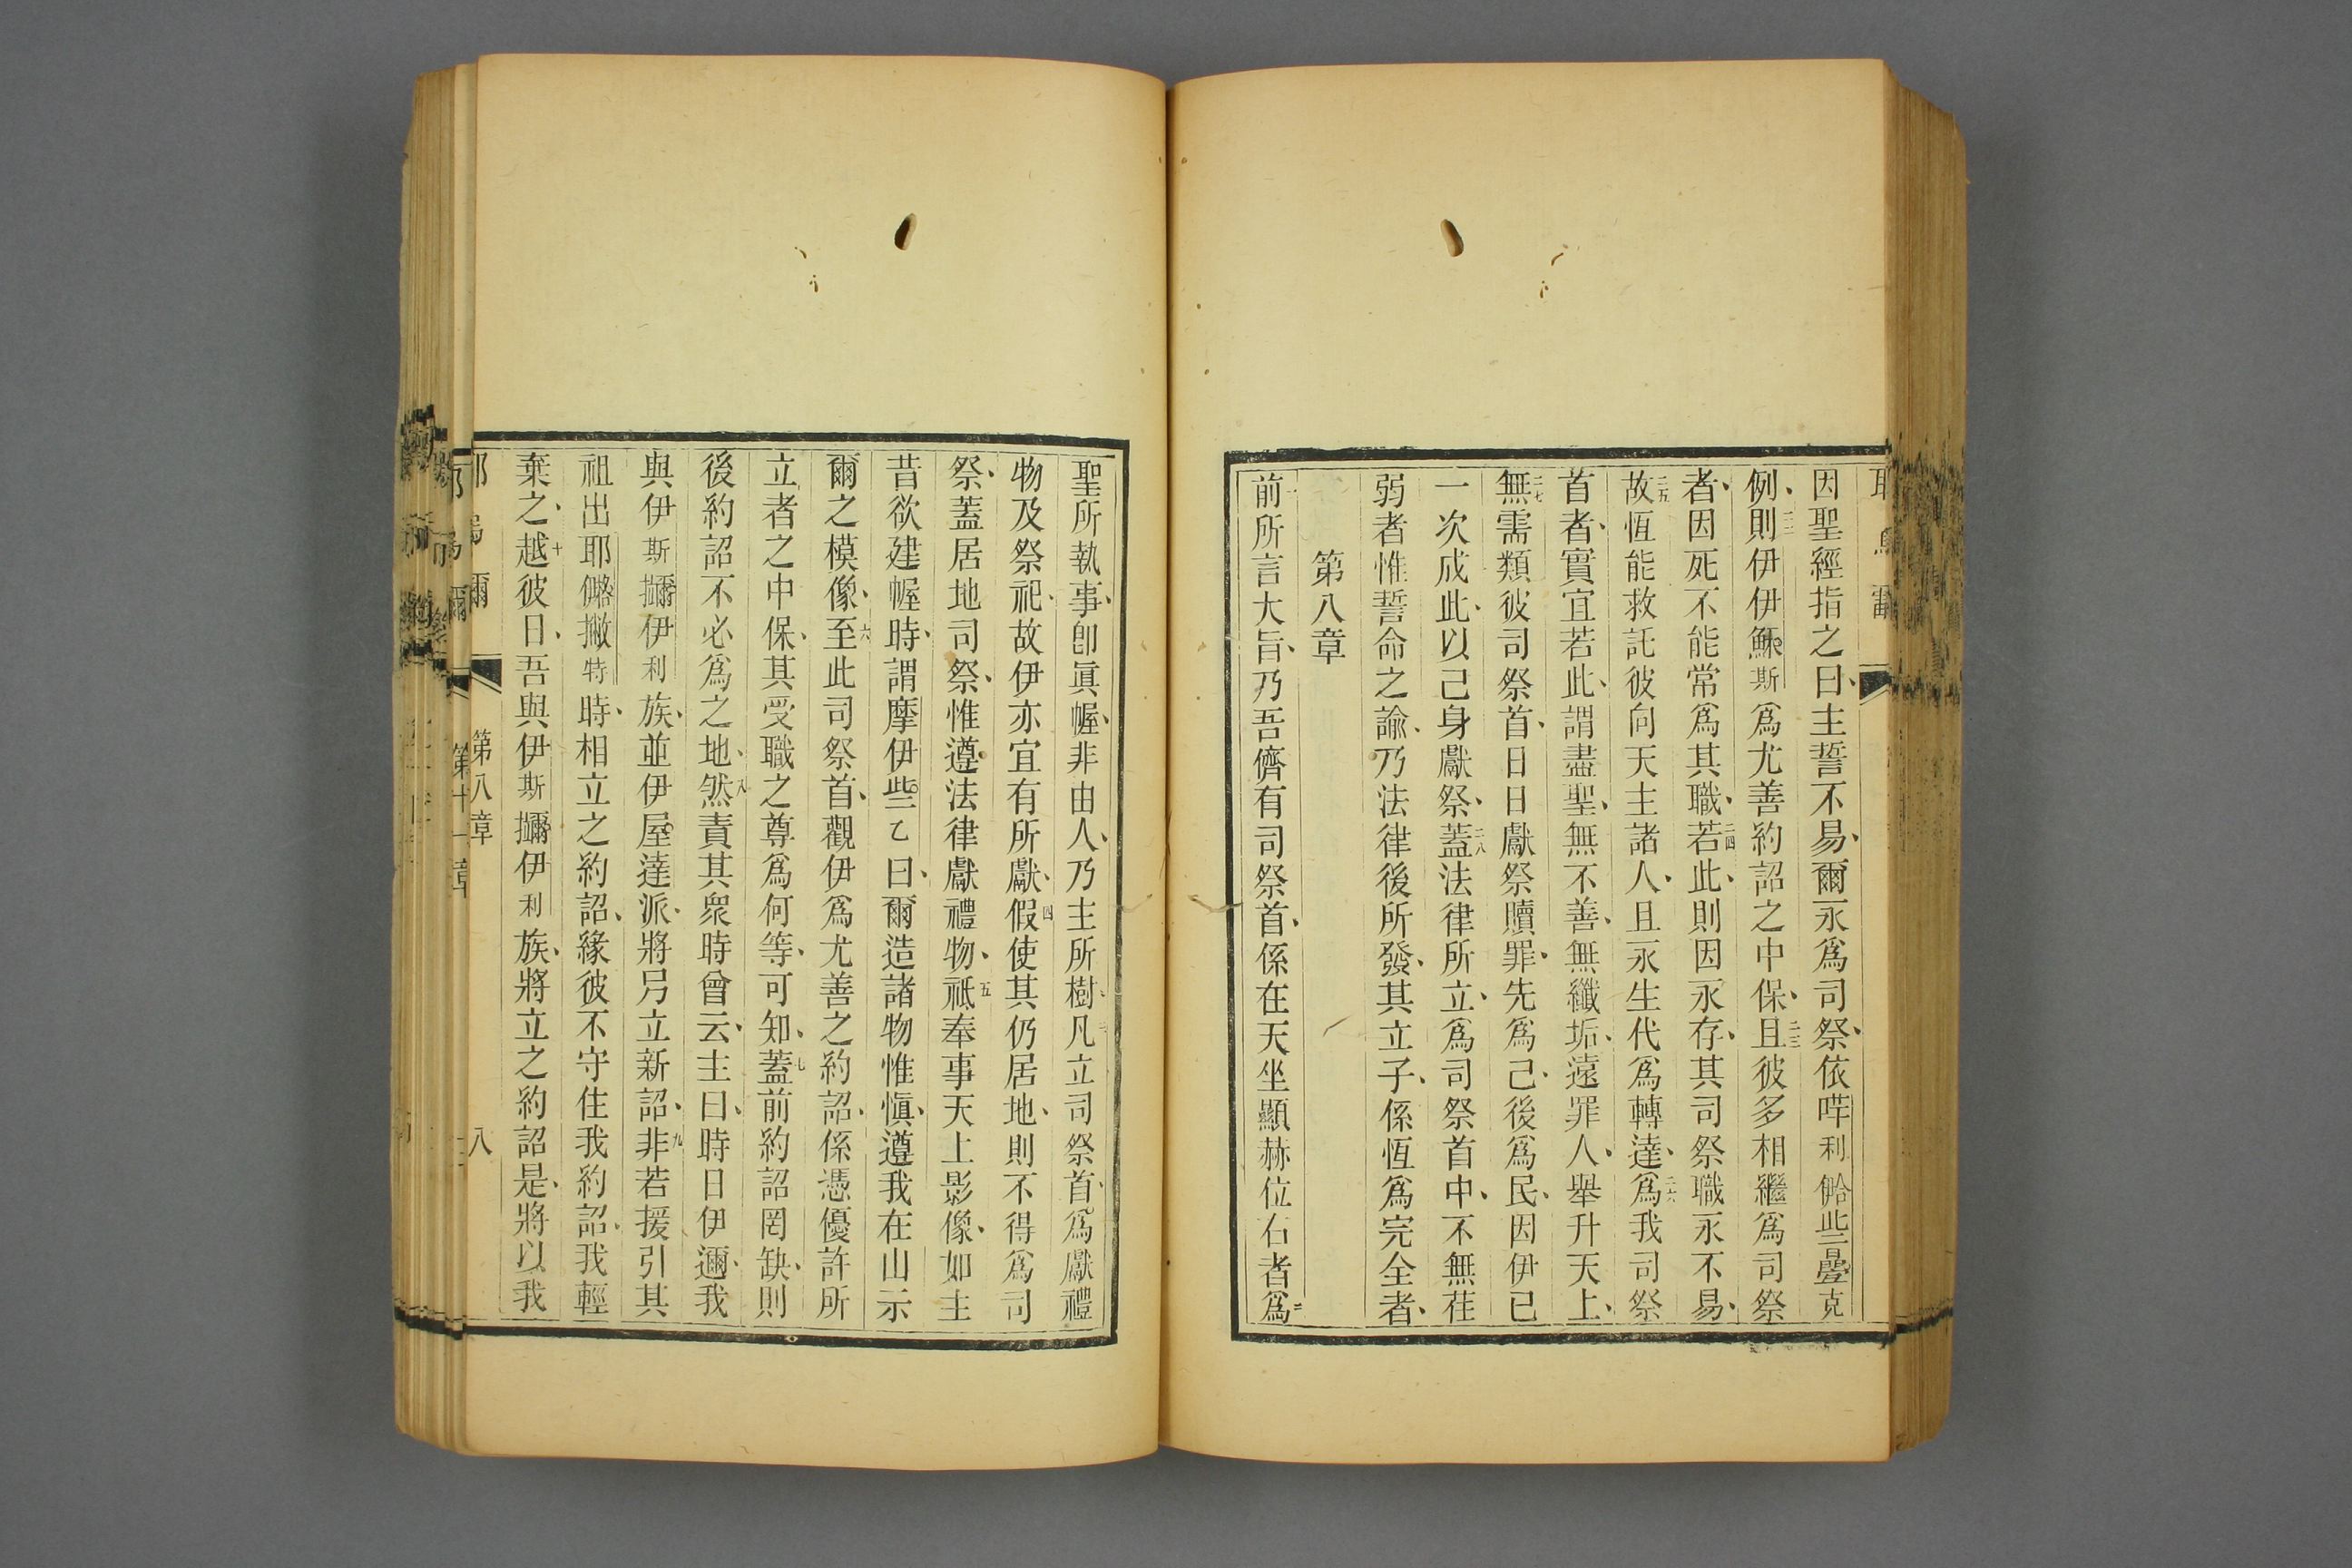 因聖經指之曰、主誓不易、爾永爲司祭、依嗶利㑲些疊克
例、二二則伊伊穌斯爲尤善約詔之中保、二三且彼多相繼爲司祭
者、因死不能常爲其職、二四若此、則因永存、其司祭職永不易、
二五故恆能救託彼向天主諸人、且永生代爲轉達、二六爲我司祭
首者、實宜若此、謂盡聖、無不善、無纖垢、遠罪人、舉升天上、
二七無需類彼司祭首、日日獻祭贖罪、先爲己、後爲民、因伊已
一次成此、以己身獻祭、二八蓋法律所立、爲司祭首中、不無荏
弱者、惟誓命之諭、乃法律後所發、其立子、係恆爲完全者、
第八章
一前所言大旨、乃吾儕有司祭首、係在天坐顯赫位右者、二爲
聖所執事、卽眞幄、非由人、乃主所樹、三凡立司祭首、爲獻禮
物及祭祀、故伊亦宜有所獻、四假使其仍居地、則不得爲司
祭、蓋居地司祭、惟遵法律獻禮物、五祗奉事天上影像、如主
昔欲建幄時、謂摩伊些乙曰、爾造諸物惟愼、遵我在山示
爾之模像、六至此司祭首、觀伊爲尤善之約詔、係憑優許所
立者之中保、其受職之尊爲何等、可知、七蓋前約詔罔缺、則
後約詔不必爲之地、八然責其衆時曾云、主曰、時日伊邇、我
與伊斯攡伊利族、並伊屋達派、將另立新詔、九非若援引其
祖出耶㒓撇特時、相立之約詔、緣彼不守住我約詔、我輕
棄之、十越彼日、吾與伊斯攡伊利族、將立之約詔是、將以我
第八章
八